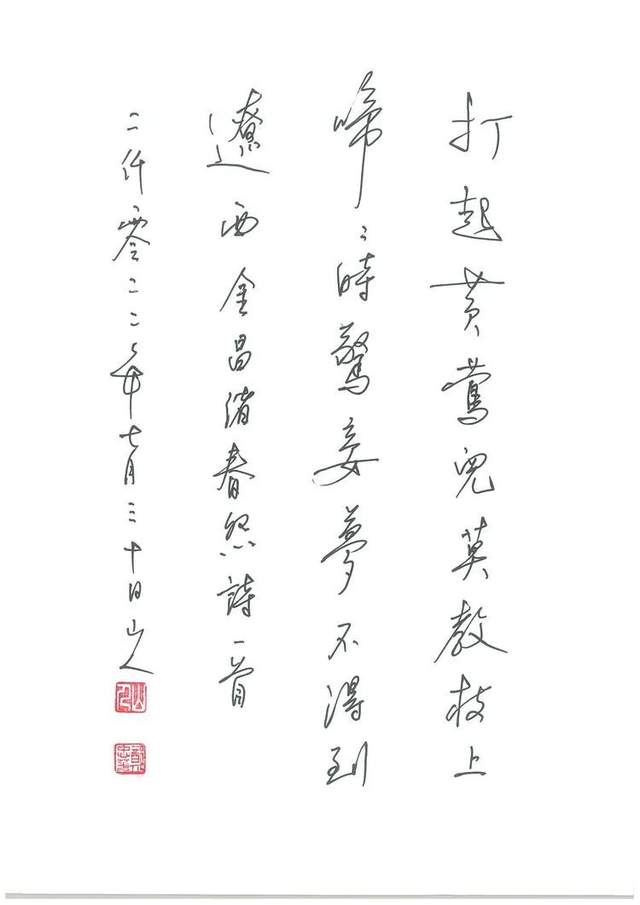 打起黄鶯兒莫教枝上
啼〻時驚妾夢不得到
遼西金昌緒春怨詩一首
二仟零二二年七月三十日山人
山人